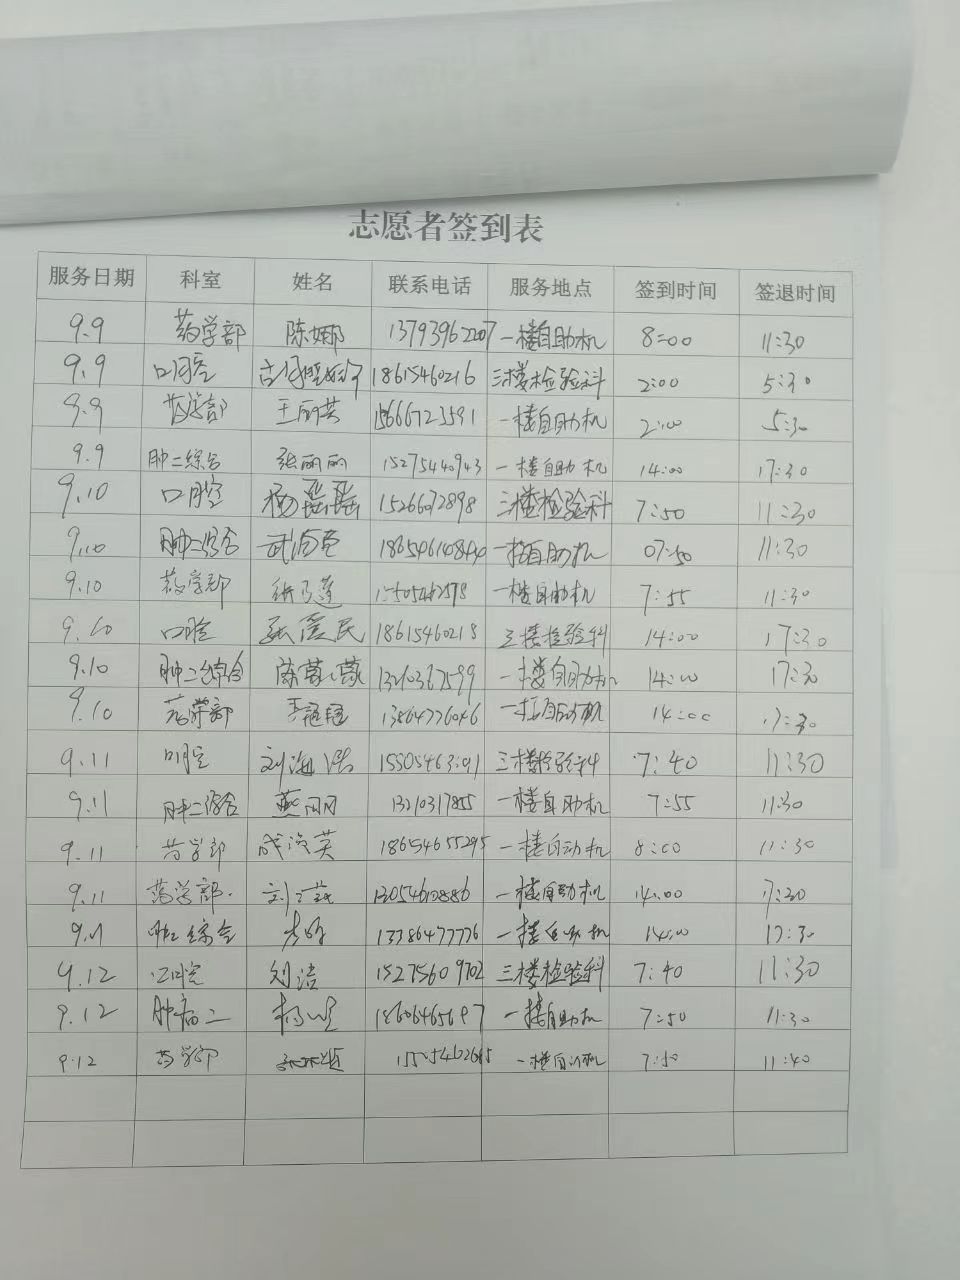 志愿者签到表
服务日期 科室 姓名 联系电话 服务地点 签到时间 签退时间
9.9 药学部 陈娜 13793962207 一楼自助机 8:00 11:30
9.9 口腔 18615460216 三楼检验科 2:00 5:30
9.9 药学部 王丽英 15666723591 一楼自助机 2:00 5:30
9.9 肿二综合 张丽丽 15275440943 一楼自助机 14:00 17:30
9.10 口腔 杨瑶瑶 15266072898 三楼检验科 7:50 11:30
9.10 肿二综合 一楼自助机 07:50 11:30
9.10 药学部 一楼自助机 7:55 11:30
9.10 口腔 张爱民 18615460218 三楼检验科 14:00 17:30
9.10 肿二综合 陈蒙蒙 一楼自助机 14:00 17:30
9.10 药学部 13864776046 一楼自助机 14:00 17:30
9.11 口腔 刘海浩 三楼检验科 7:40 11:30
9.11 肿二综合 燕网网 13210317855 一楼自助机 7:55 11:30
9.11 药学部 18654655295 一楼自动机 8:00 11:30
9.11 药学部 13054610886 一楼自助机 14:00 17:30
9.11 肿二综合 13386477776 一楼自助机 14:00 17:30
9.12 口腔 刘洁 15275609702 三楼检验科 7:40 11:30
9.12 肿瘤二 18606465697 一楼自助机 7:50 11:30
9.12 药学部 一楼自助机 7:50 11:40